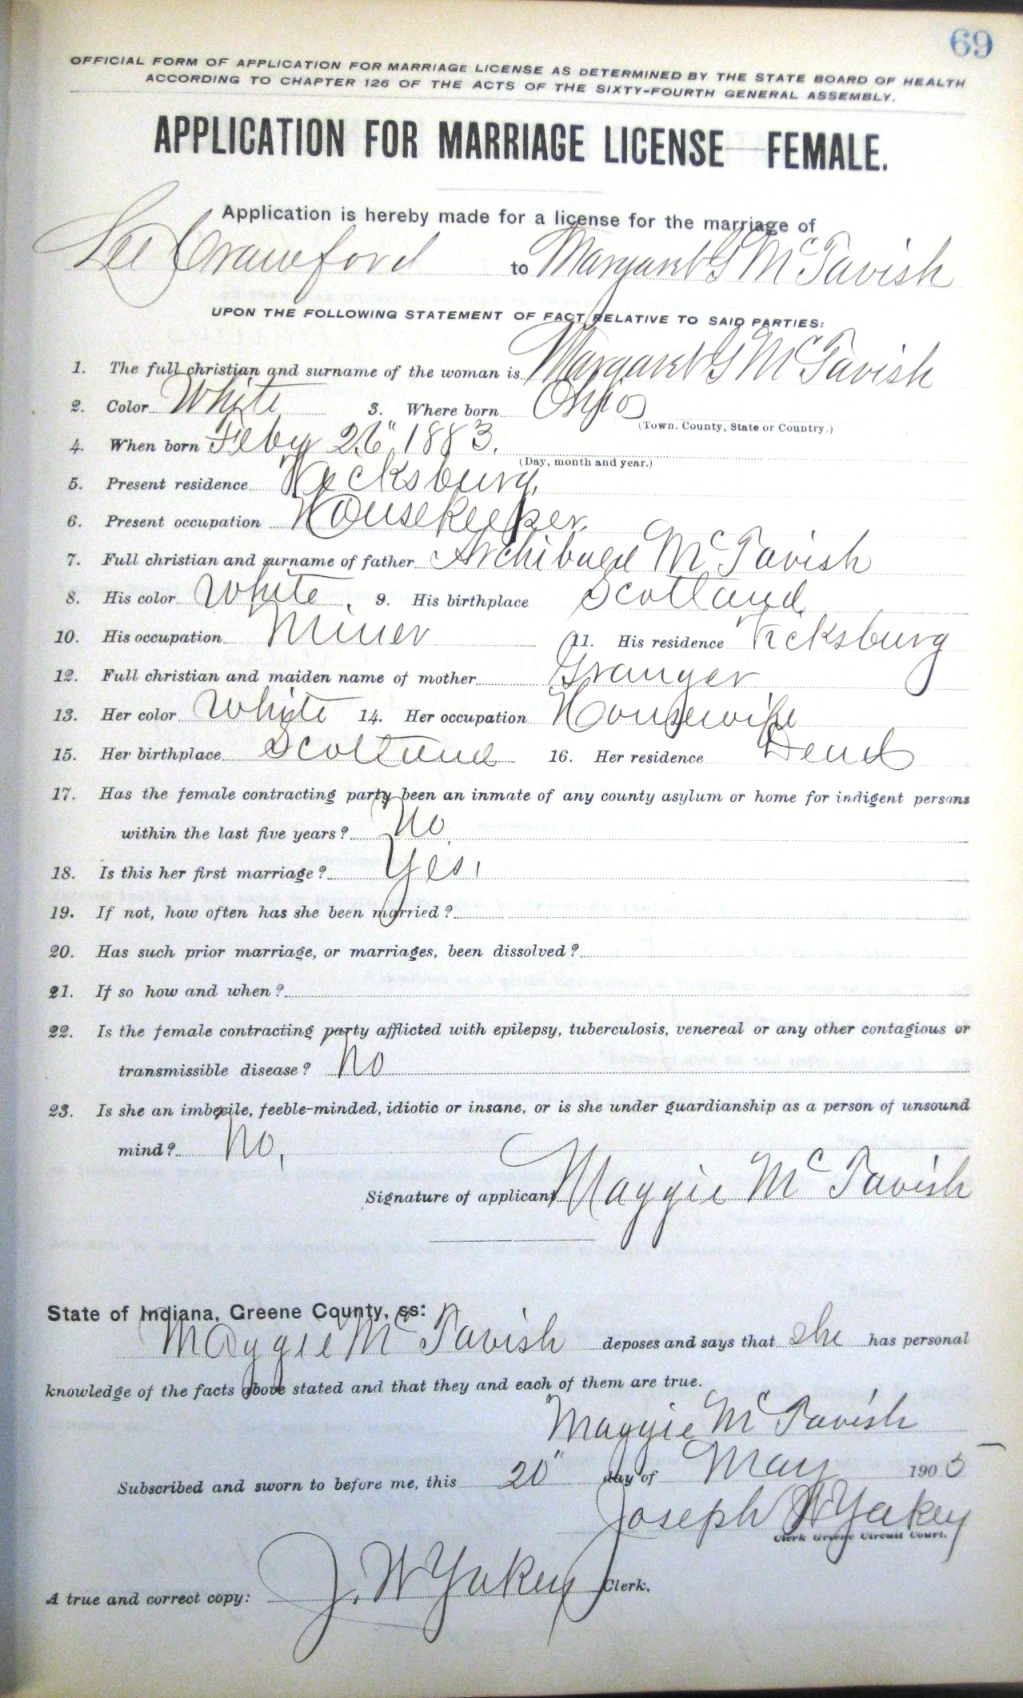 69
OFFICIAL FORM OF APPLICATION FOR MARRIAGE LICENSE AS DETERMINED BY THE STATE BOARD OF HEALTH
ACCORDING TO CHAPTER 126 OF THE ACTS OF THE SIXTY-FOURTH GENERAL ASSEMBLY.
APPLICATION FOR MARRIAGE LICENSE—FEMALE.
Application is hereby made for a license for the marriage of
Lee Crawford to Margaret G McTavish
UPON THE FOLLOWING STATEMENT OF FACT RELATIVE TO SAID PARTIES:
1. The full christian and surname of the woman is Margaret G McTavish
2. Color White 3. Where born Ohio
(Town, County, State or Country.)
4. When born Feby 26" 1883.
(Day, month and year.)
5. Present residence Vicksburg,
6. Present occupation Housekeeper.
7. Full christian and surname of father Archibald McTavish
8. His color White. 9. His birthplace Scotland
10. His occupation Miner 11. His residence Vicksburg
12. Full christian and maiden name of mother Granger
13. Her color White 14. Her occupation Housewife
15. Her birthplace Scotland 16. Her residence Dead
17. Has the female contracting party been an inmate of any county asylum or home for indigent persons
within the last five years? No
18. Is this her first marriage? Yes.
19. If not, how often has she been married?
20. Has such prior marriage, or marriages, been dissolved?
21. If so how and when?
22. Is the female contracting party afflicted with epilepsy, tuberculosis, venereal or any other contagious or
transmissible disease? No
23. Is she an imbecile, feeble-minded, idiotic or insane, or is she under guardianship as a person of unsound
mind? No,
Signature of applicant Maggie McTavish
State of Indiana, Greene County, ss:
Maggie McTavish deposes and says that she has personal
knowledge of the facts above stated and that they and each of them are true.
Maggie McTavish
Subscribed and sworn to before me, this 20" day of May 1905
Joseph W Yakey
Clerk Greene Circuit Court.
A true and correct copy: J. W Yakey Clerk.